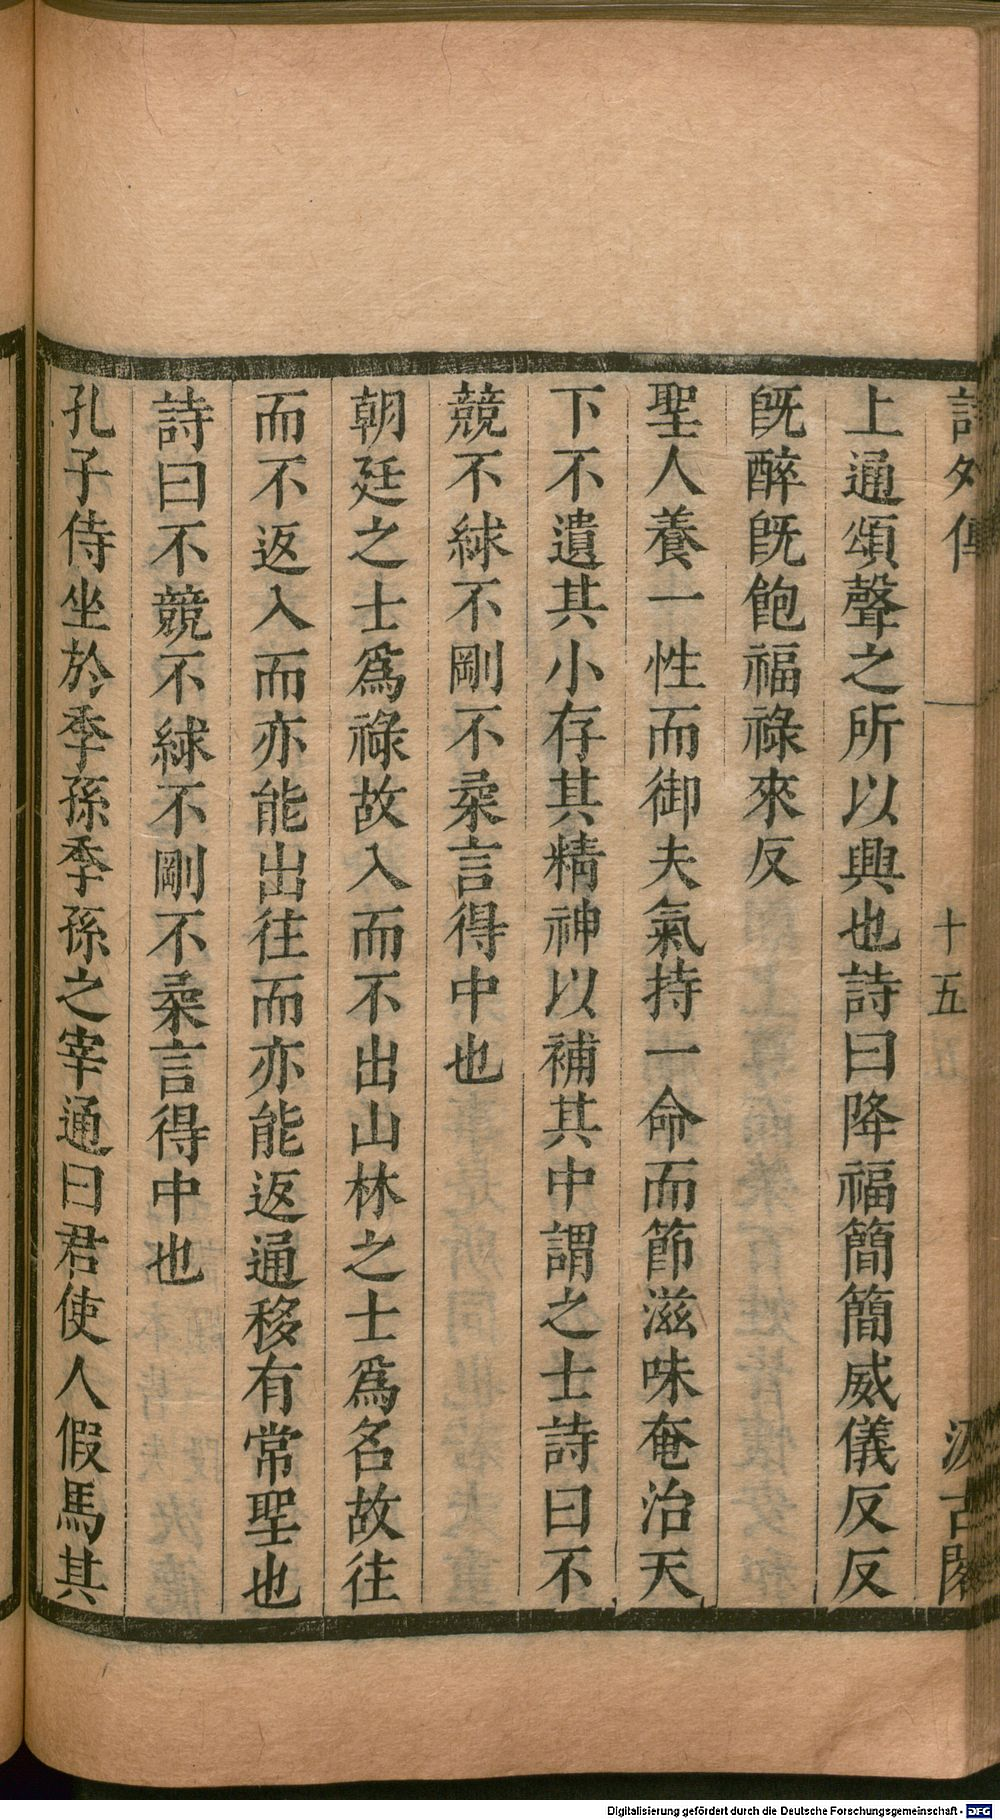 詩外傳 十五 汲古閣
上通頌聲之所以興也詩曰降福簡簡威儀反反
旣醉旣飽福祿來反
聖人養一性而御夫氣持一命而節滋味奄治天
下不遺其小存其精神以補其中謂之士詩曰不
競不絿不剛不柔言得中也
朝廷之士爲祿故入而不出山林之士爲名故往
而不返入而亦能出往而亦能返通移有常聖也
詩曰不競不絿不剛不柔言得中也
孔子侍坐於季孫季孫之宰通曰君使人假馬其
Digitalisierung gefördert durch die Deutsche Forschungsgemeinschaft - DFG